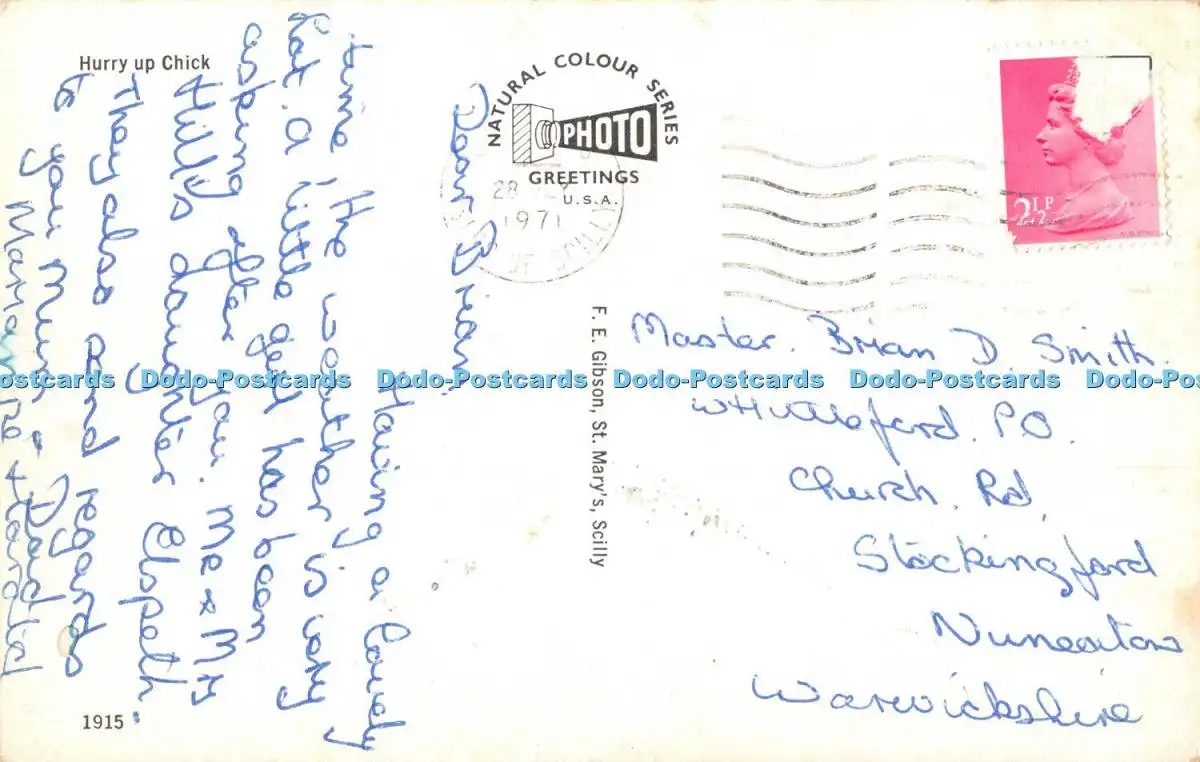 Hurry up Chick
NATURAL COLOUR SERIES
PHOTO
GREETINGS
U.S.A.
28
1971
OF SCILLY
2½P
Dear Brian
Having a lovely
time the weather is very
hot. a little girl has been
asking after you. Mr & Mrs
Hills daughter Elspeth.
They also send regards
to you Mum & Dad
Marian & Harold
F. E. Gibson, St. Mary's, Scilly
Master. Brian D. Smith.
Whittleford. P.O.
Church. Rd,
Stockingford
Nuneaton
Warwickshire
1915
Dodo-Postcards Dodo-Postcards Dodo-Postcards Dodo-Postcards Dodo-Postcards